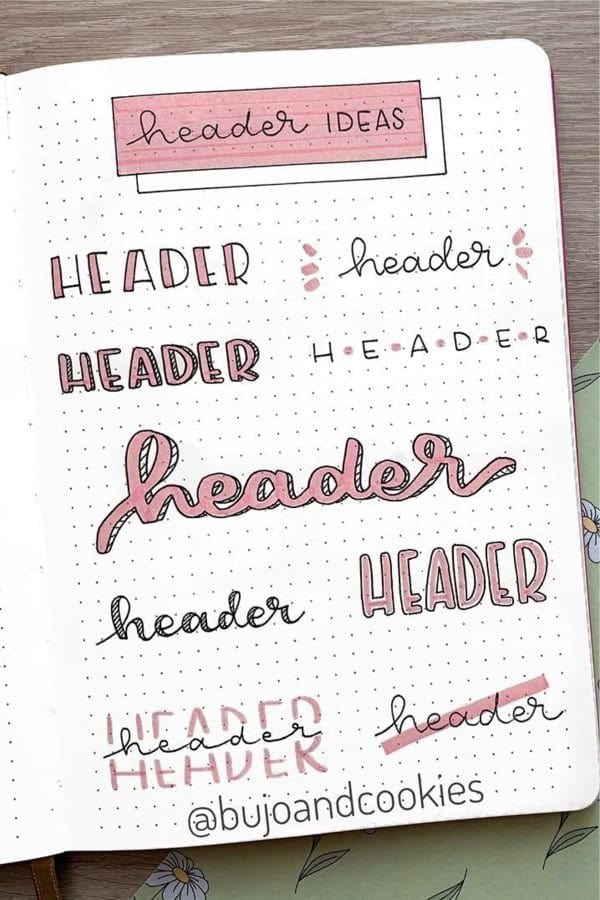 header IDEAS
HEADER
header
HEADER
H·E·A·D·E·R
header
HEADER
header
HEADER
header
header
@bujoandcookies